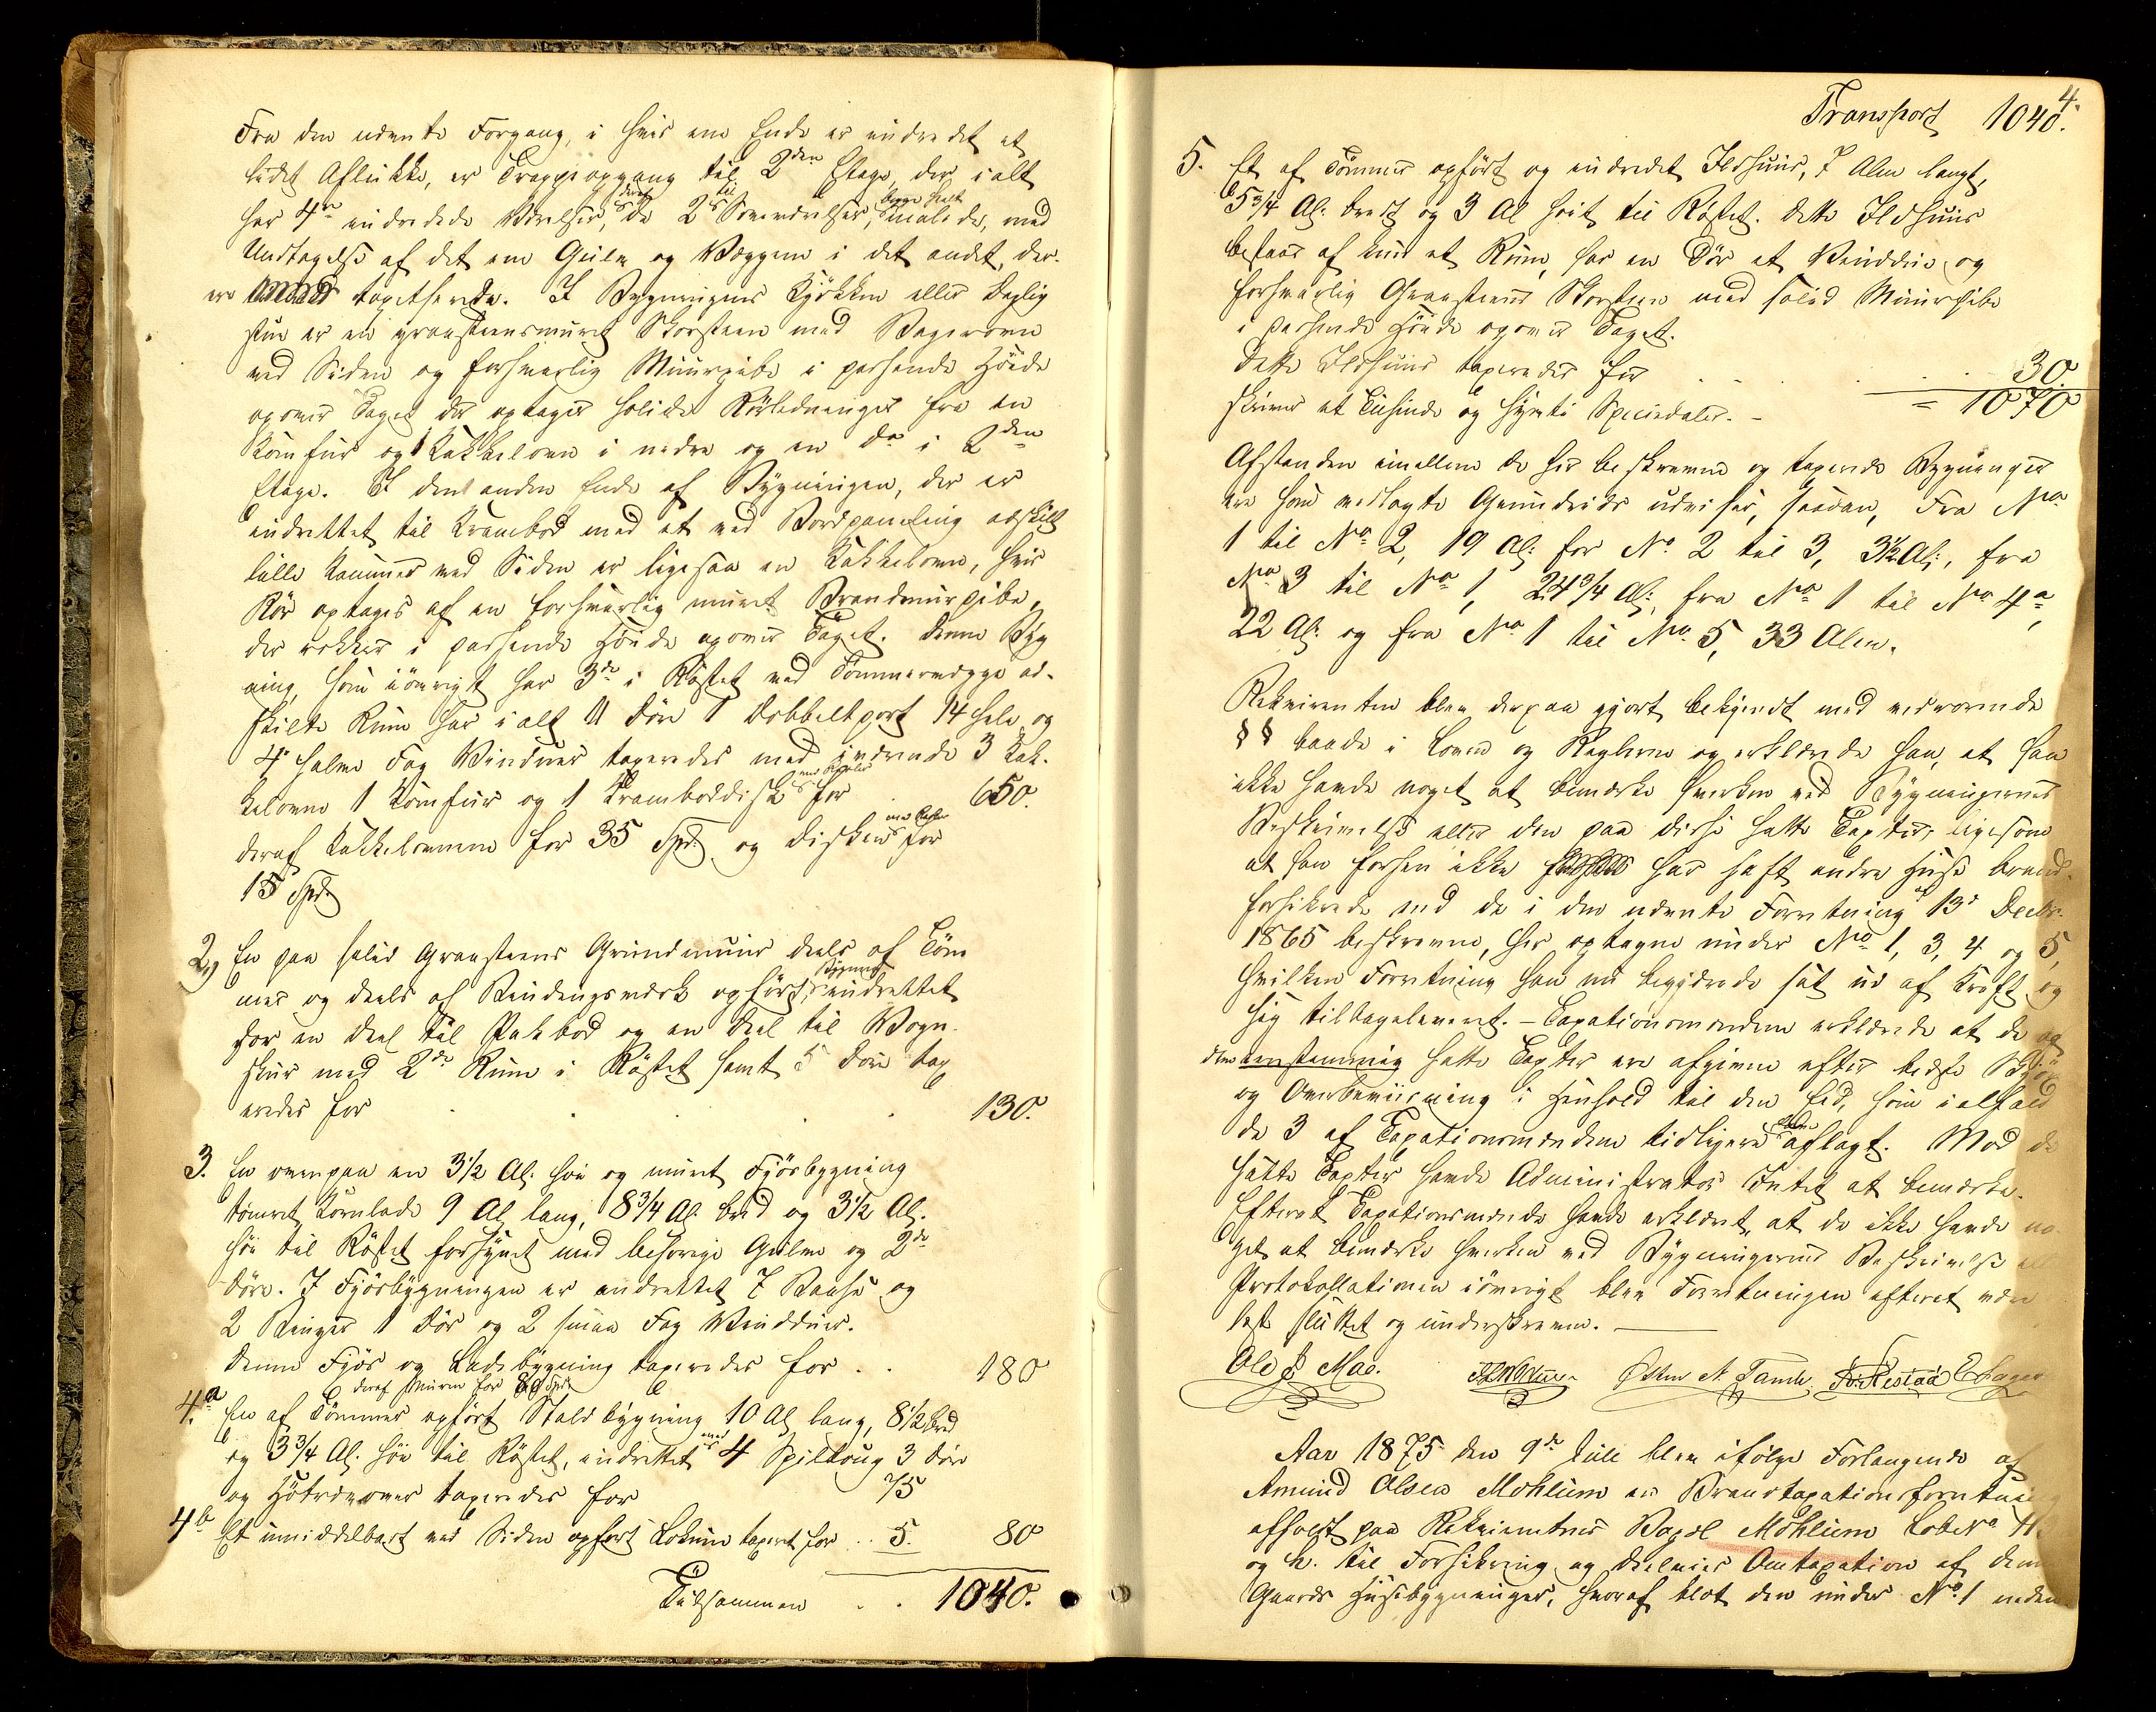 Fra den nævnte Forgang, i hvis ene Ende er indredet et
lidet Aflukke, er Trappeopgang til 2den Etage, der i alt
har 4re indredede Værelser, deraf de 2 til Soveværelser, begge helt malede, med
Undtagelse af det ene Gulv og Væggene i det andet, der
ere tapetserede. I Bygningens Kjøkken eller Daglig
stue er en graasteensmuret Skorsteen med Bagerovn
ved Siden og forsvarlig Muurpibe i passende Høide
ovover Taget der optager solide Rørledninger fra en
Komfur og 1 Kakkelovn i nedre og en do i 2den
Etage. I den anden Ende af Bygningen, der er
indrettet til Krambod med et ved Bordpaneling adskilt
lille Kammer ved Siden er ligesaa en Kakkelovn, hvis
Rør optages af en forsvarlig muret Brandmurpibe,
der rækker i passende Høide opover Taget. Denne Byg
ning, som iøvrigt har 3de i Røstet ved Tømmervægge ad-
skilte Rum har i alt 11 Døre 1 Dobbeltport 14 hele og
4 halve Fag Vinduer taxeredes med iværende 3 Kak-
kelovne 1 Komfur og 1 Kramboddisk med Reoler for 650.
deraf Kakkelovnene for 35 Spd. og Disken med Reoler for
15 Spd.
2, En paa solid Graasteens Grundmuur deels af Tøm
mer og deels af Bindingsværk opført Bygning indrettet
for en Deel til Pakbod og en Deel til Vogn-
skur med 2de Rum i Røstet samt 5 Døre tax
eredes for . . . 130.
3. En ovenpaa en 3½ Al. høi og muret Fjøsbygning
tømret Kornlade 9 Al lang, 8¾ Al. bred og 3½ Al.
høi til Røstet forsynet med behørige Gulve og 2de
Døre. I Fjøsbygningen er indrettet 7 Baase og
2 Binger 1 Dør og 2 smaa Fag Vindduer.
Denne Fjøs og Ladebygning taxeredes for . . 180
deraf Muren for 80 Spd
4.a En af Tømmer opført Staldbygning 10 Al lang, 8½ bred
og 3¾ Al. høi til Røstet, indrettet med 4 Spiltoug 3 Døre
og Høtrev over taxeredes for 75
4b Et umiddelbart ved Siden opført Lokum taxeret for .. 5. 80
Tilsammen . . 1040.
4.
Transport 1040.
5. Et af Tømmer opført og indredet Ildhuus, 7 Alen langt,
5¾ Al. bredt og 3 Al høit til Røstet. Dette Ildhuus
bestaar af kun et Rum, har en Dør et Vinddue og
forsvarlig Graasteens Skorsteen med solid Muurpibe
i passende Høide opover Taget.
Dette Ildhuus taxeredes for . . . 30.
skriver et Tusinde og sytti Speciedaler. - = 1070
Afstanden imellem de her beskrevne og taxerede Bygninger
ere som vedlagte Grundrids udviser, saadan, Fra No
1 til No 2, 19 Al: for No. 2 til 3, 3½ Al:, fra
No 3 til No 1, 24¾ Al:, fra No 1 til No 4a,
22 Al: og fra No 1 til No 5, 33 Alen.
Rekvirenten blev derpaa gjort bekjendt med vedrørende
§ § baade i Loven og Reglerne og erklærede han, at han
ikke havde noget at bemærke hverken ved Bygningernes
Beskrivelse eller den paa disse satte Taxter, ligesom
at han forhen ikke har haft andre Huse brand-
forsikrede end de i den nævnte Forretning af 13de Decbr.
1865 beskrevne, her optagne under No 1, 3, 4 og 5,
hvilken Forretning han nu begjærede sat ud af Kraft og
sig tilbageleveret. - Taxationsmændene erklærede at de af
dem eenstemmig satte Taxter ere afgivne efter bedste Skjøn
og Overbeviisning i Henhold til den Eed, som ialfald
de 3 af Taxationsmændene tidligere have aflagt. Mod de
satte Taxter havde Administrator Intet at bemærke.
Efterat Taxationsmænde havde erklæret, at de ikke havde no
get at bemærke hverken ved Bygningernes Beskrivelse ell
Protokollationen iøvrigt blev Forretningen efterat være
læst sluttet og underskreven.
Ole J. Moe. Østen A Tande
Aar 1875 den 9de Juli blev ifølge Forlangende af
Amund Olsen Mohlum en Brandtaxationsforretning
afholdt paa Rekvirentens Bopæl Mohlum Løbe No
og h. til Forsikring og deelviis Omtaxation af denne
Gaards Husebygninger, hvoraf blot den under No. 1 neden